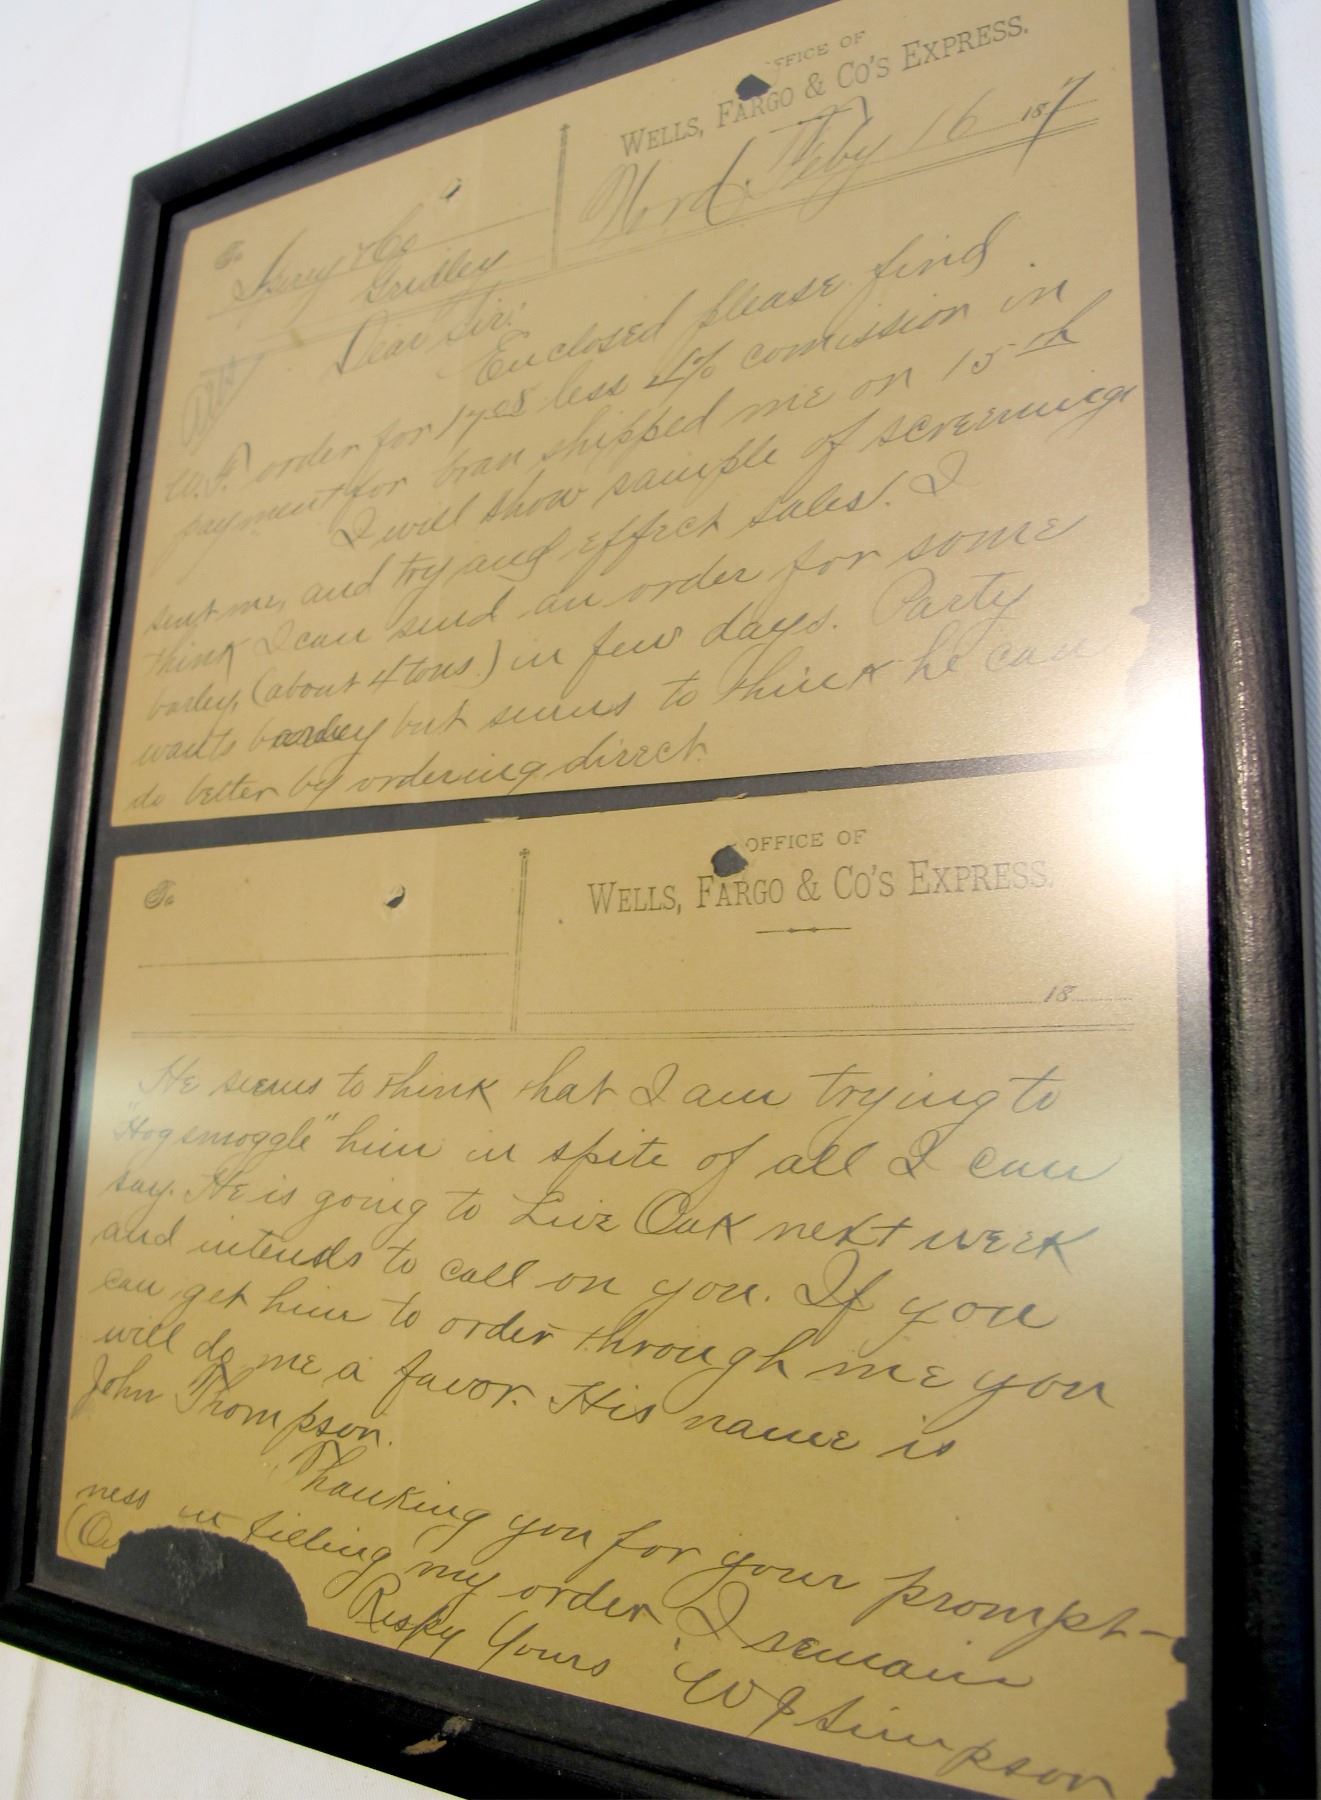 OFFICE OF
WELLS, FARGO & CO'S EXPRESS.
Feby 16 187
To
& Co
Gridley
Dear Sir:
Enclosed please find
W.F. order for 17 08 less 4% comission in
payment for bran shipped me on 15th
I will show sample of screenings
sent me, and try and effect sales. I
think I can send an order for some
barley, (about 4 tons.) in few days. Party
wants barley but seems to think he can
do better by ordering direct.
To
OFFICE OF
WELLS, FARGO & CO'S EXPRESS.
18
He seems to think that I am trying to
"Hogsmoggle" him in spite of all I can
say. He is going to Live Oak next week
and intends to call on you. If you
can get him to order through me you
will do me a favor. His name is
John Thompson.
Thanking you for your prompt-
ness in filling my order, I remain
Respy Yours
W J Simpson